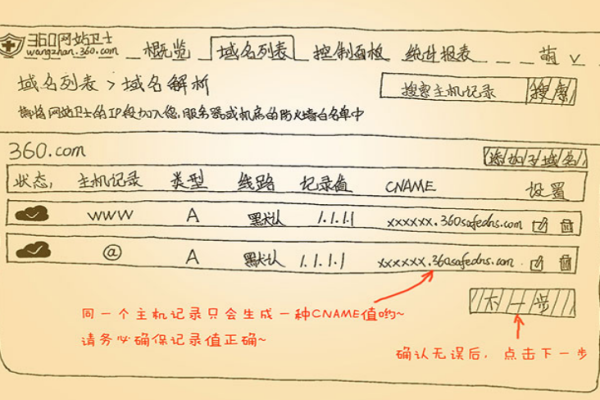 360网站卫士
wangzhan.360.com
概览 域名列表 控制面板 统计报表 萌
域名列表 > 域名解析
搜索主机记录 搜索
请将网站卫士的IP段加入您服务器或机房的防火墙白名单中
360.com
添加子域名
状态 主机记录 类型 线路 记录值 CNAME 设置
www A 默认 1.1.1.1 xxxxxx.360safedns.com
@ A 默认 1.1.1.1 xxxxxx.360safedns.com
下一步
同一个主机记录只会生成一种CNAME值哟~
请务必确保记录值正确~
确认无误后，点击下一步